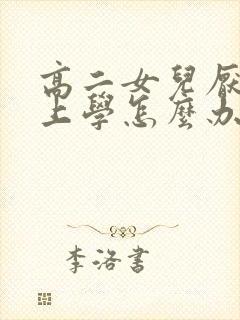 高二女兒厭
上學怎麼办
李洛書